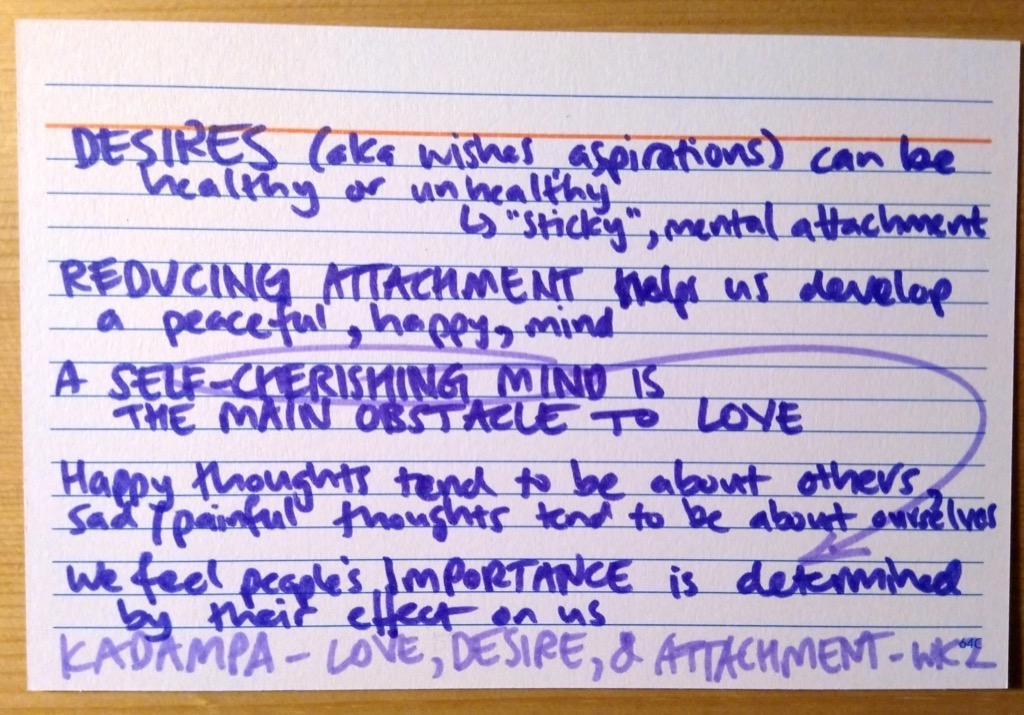 DESIRES (aka wishes, aspirations) can be
healthy or unhealthy
↳ "sticky", mental attachment
REDUCING ATTACHMENT helps us develop
a peaceful, happy, mind
A SELF-CHERISHING MIND IS
THE MAIN OBSTACLE TO LOVE
Happy thoughts tend to be about others,
sad/painful thoughts tend to be about ourselves
We feel people's IMPORTANCE is determined
by their effect on us
64C
KADAMPA - LOVE, DESIRE, & ATTACHMENT - WK2